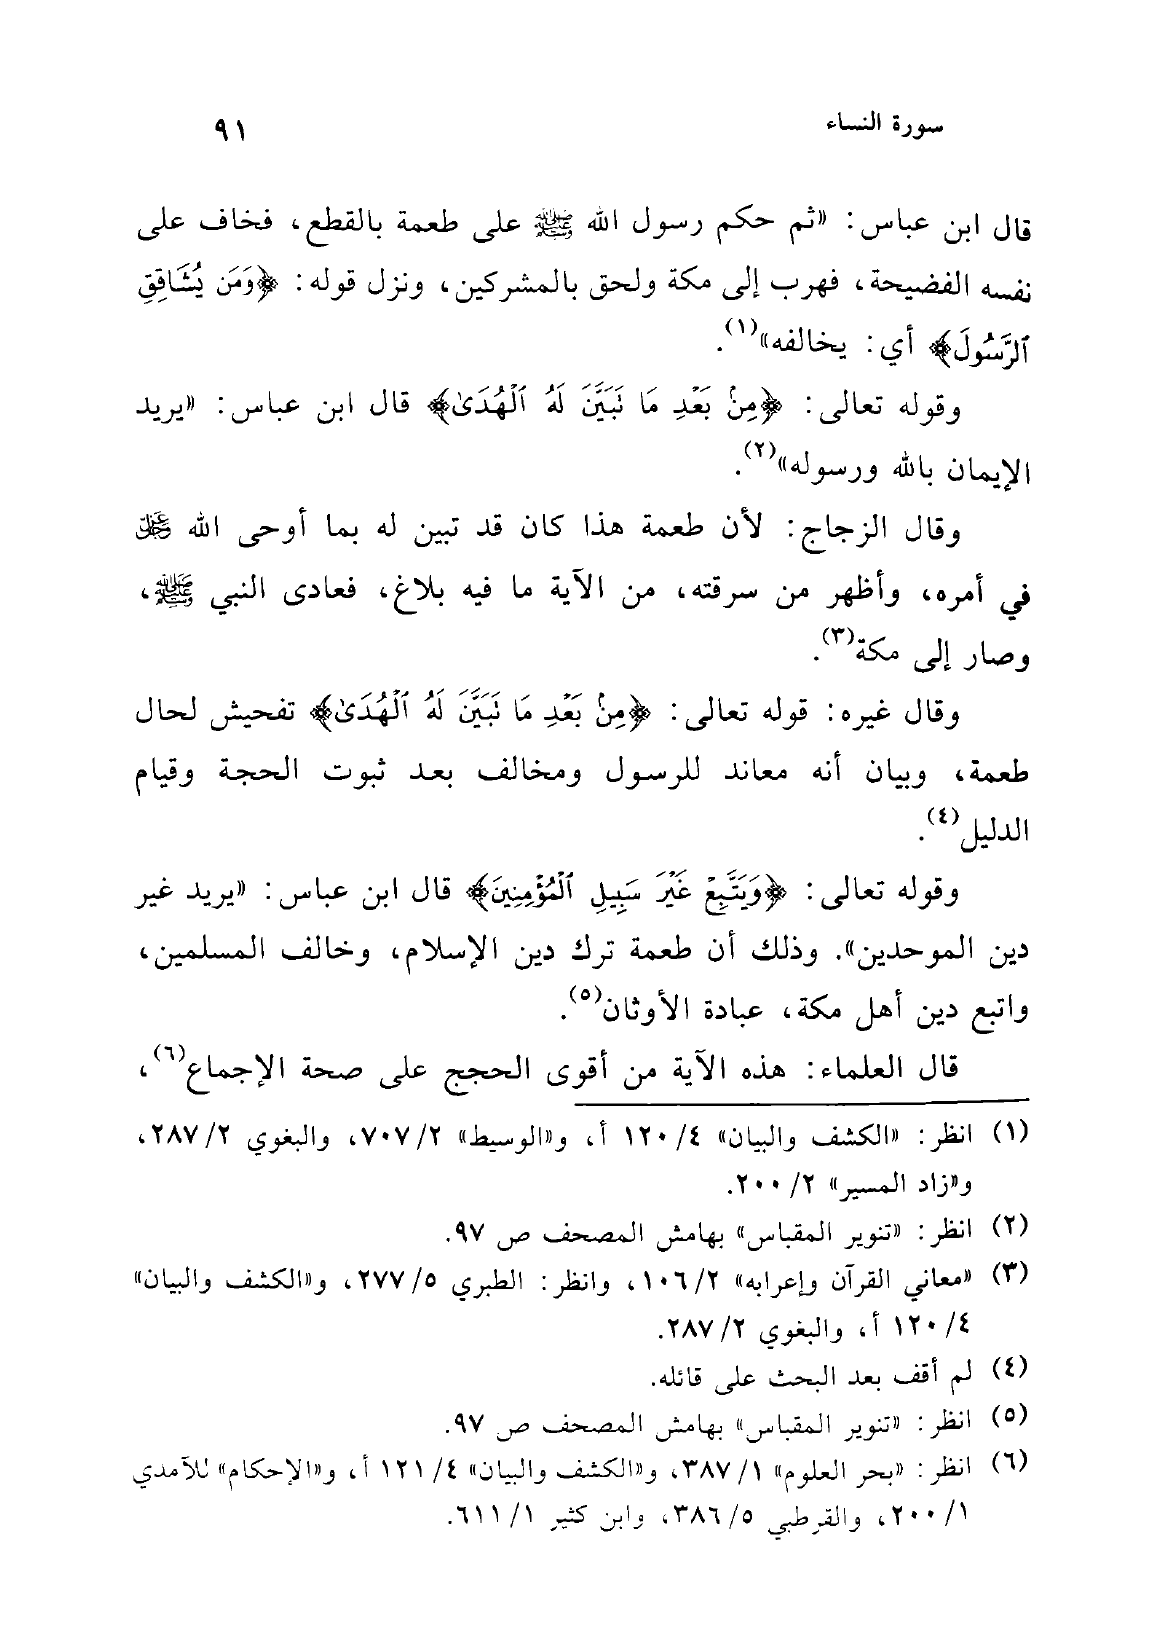 سورة النساء ٩١
قال ابن عباس: «ثم حكم رسول الله ﷺ على طعمة بالقطع، فخاف على
نفسه الفضيحة، فهرب إلى مكة ولحق بالمشركين، ونزل قوله: ﴿وَمَن يُشَاقِقِ
ٱلرَّسُولَ﴾ أي: يخالفه»(١).
وقوله تعالى: ﴿مِنۢ بَعْدِ مَا تَبَيَّنَ لَهُ ٱلْهُدَىٰ﴾ قال ابن عباس: «يريد
الإيمان بالله ورسوله»(٢).
وقال الزجاج: لأن طعمة هذا كان قد تبين له بما أوحى الله ﷻ
في أمره، وأظهر من سرقته، من الآية ما فيه بلاغ، فعادى النبي ﷺ،
وصار إلى مكة(٣).
وقال غيره: قوله تعالى: ﴿مِنۢ بَعْدِ مَا تَبَيَّنَ لَهُ ٱلْهُدَىٰ﴾ تفحيش لحال
طعمة، وبيان أنه معاند للرسول ومخالف بعد ثبوت الحجة وقيام
الدليل(٤).
وقوله تعالى: ﴿وَيَتَّبِعْ غَيْرَ سَبِيلِ ٱلْمُؤْمِنِينَ﴾ قال ابن عباس: «يريد غير
دين الموحدين». وذلك أن طعمة ترك دين الإسلام، وخالف المسلمين،
واتبع دين أهل مكة، عبادة الأوثان(٥).
قال العلماء: هذه الآية من أقوى الحجج على صحة الإجماع(٦)،
(١) انظر: «الكشف والبيان» ٤/ ١٢٠ أ، و«الوسيط» ٢/ ٧٠٧، والبغوي ٢/ ٢٨٧،
و«زاد المسير» ٢/ ٢٠٠.
(٢) انظر: «تنوير المقباس» بهامش المصحف ص ٩٧.
(٣) «معاني القرآن وإعرابه» ٢/ ١٠٦، وانظر: الطبري ٥/ ٢٧٧، و«الكشف والبيان»
٤/ ١٢٠ أ، والبغوي ٢/ ٢٨٧.
(٤) لم أقف بعد البحث على قائله.
(٥) انظر: «تنوير المقباس» بهامش المصحف ص ٩٧.
(٦) انظر: «بحر العلوم» ١/ ٣٨٧، و«الكشف والبيان» ٤/ ١٢١ أ، و«الإحكام» للآمدي
١/ ٢٠٠، والقرطبي ٥/ ٣٨٦، وابن كثير ١/ ٦١١.